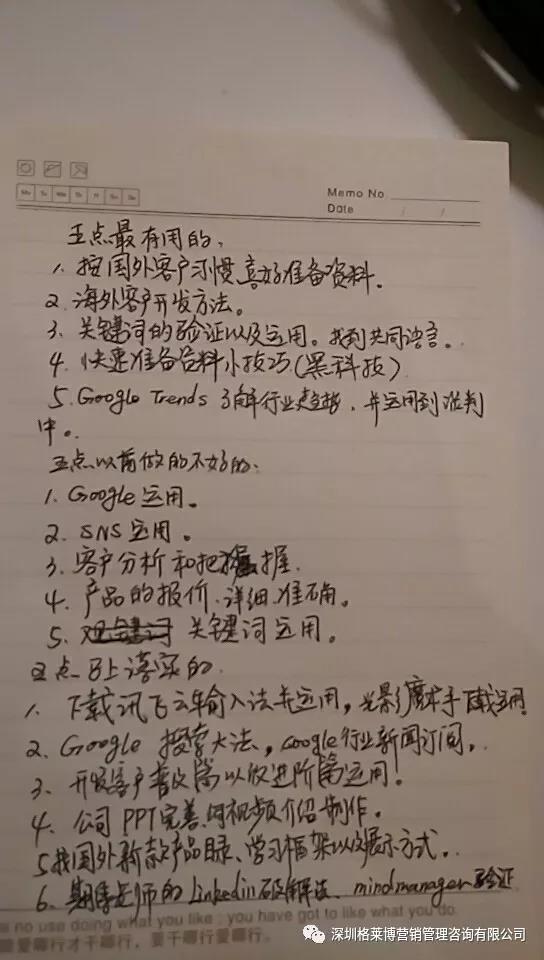 Memo No.
Date / /
五点最有用的、
1. 按国外客户习惯、喜好准备资料.
2. 海外客户开发方法。
3. 关键词的验证以及运用。找到共同语言。
4. 快速准备资料小技巧(黑科技)
5. Google Trends 了解行业趋势、并运用到谈判
中。
五点以前做的不好的、
1. Google 运用。
2. SNS 运用。
3. 客户分析和把握.
4. 产品的报价.详细.准确。
5. 关键词运用。
五点马上落实的.
1. 下载讯飞输入法并运用,光影魔术手下载运用
2. Google 搜索大法,Google行业新闻订阅,
3. 开发客户普及篇以及进阶篇运用!
4. 公司PPT完善,视频介绍制作.
5 找国外新款产品目录、学习框架以及展示方式.
6. 老师的Linkedin破解法、mindmanager验证
is no use doing what you like ; you have got to like what you do.
爱哪行才干哪行,要干哪行爱哪行。
深圳格莱博营销管理咨询有限公司